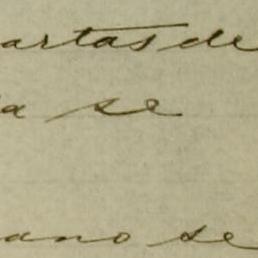 artas de
a se
ano se